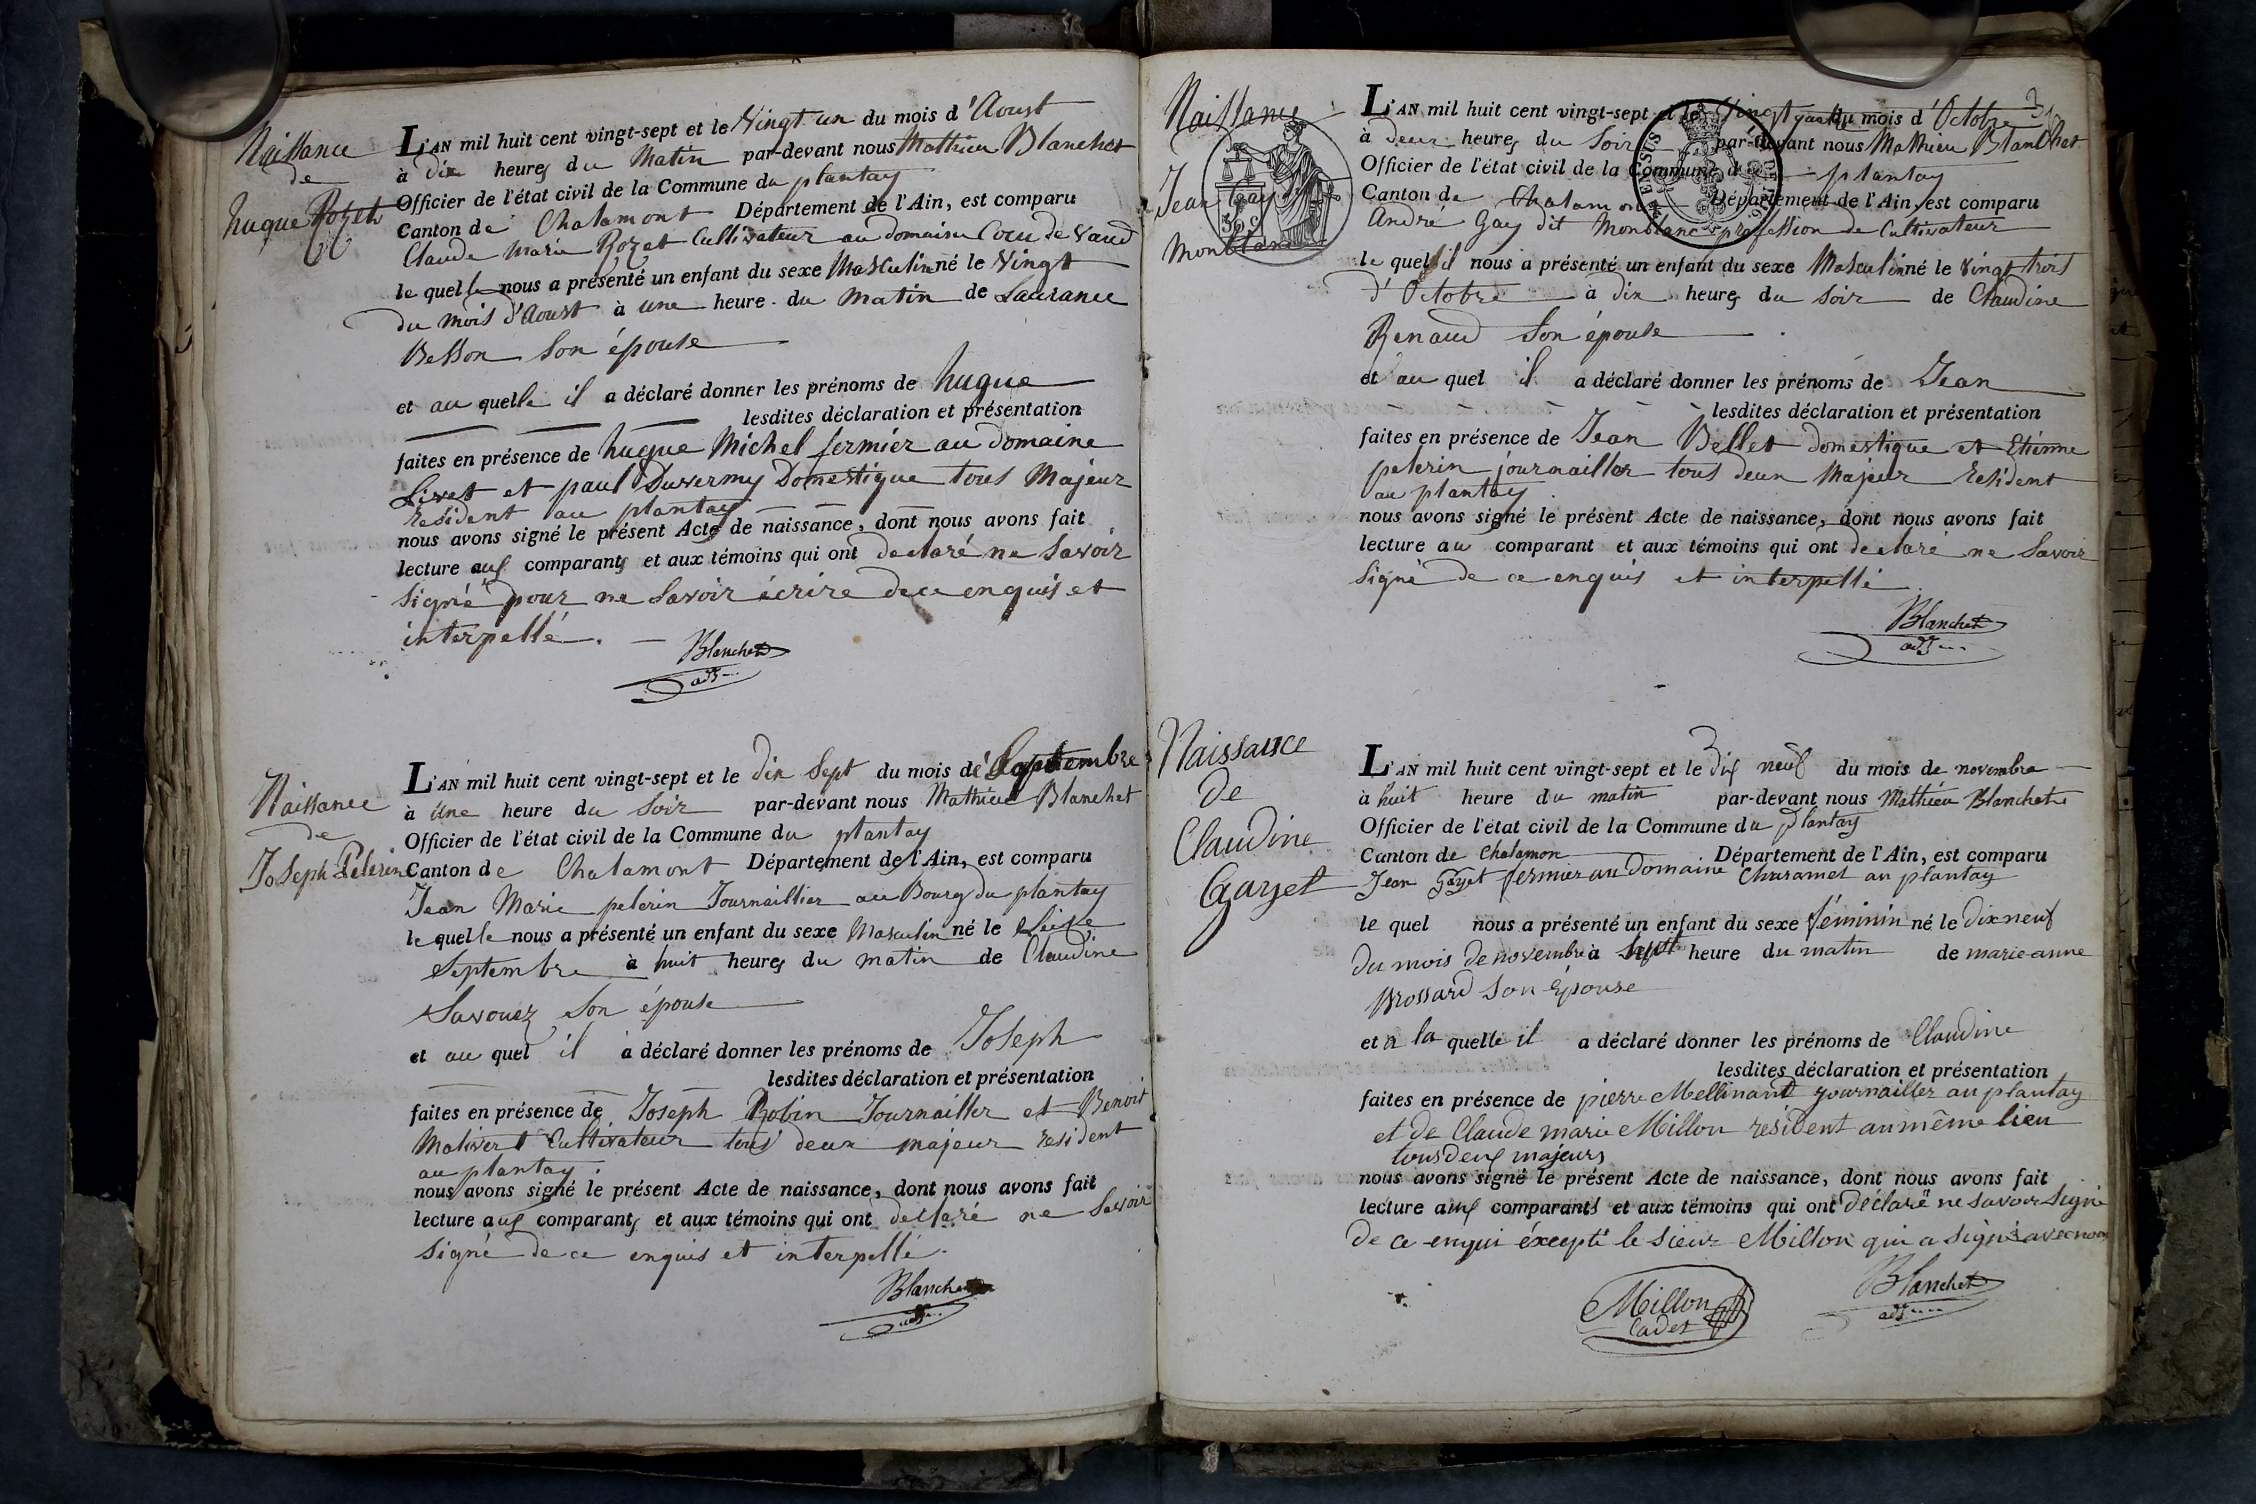 Naissance
de
hugue Rozet
L'AN mil huit cent vingt-sept et le Vingt un du mois d'Aoust
à dix heures du Matin par-devant nous Mathieu Blanchet
Officier de l'état civil de la Commune du plantay
Canton de Chalamont Département de l'Ain, est comparu
Claude Marie Rozet Cultivateur au domaine Coeu de Vaud
le quelle nous a présenté un enfant du sexe Masculin né le Vingt
du mois d'Aoust à une heure du matin de Laurance
Besson Son épouse
et au quelle il a déclaré donner les prénoms de hugue
lesdites déclaration et présentation
faites en présence de hugue Michel fermier au domaine
Livet et paul Duvermy Domestique tous Majeur
resident au plantay
nous avons signé le présent Acte de naissance, dont nous avons fait
lecture aux comparants et aux témoins qui ont declaré ne Savoir
Signé pour ne Savoir écrire de ce enquis et
interpellé.
Blanchet
adj
Naissance
de
Joseph Pelerin
L'AN mil huit cent vingt-sept et le dix Sept du mois de Septembre
à Une heure du Soir par-devant nous Mathieu Blanchet
Officier de l'état civil de la Commune du plantay
Canton de Chalamont Département de l'Ain, est comparu
Jean Marie pelerin Journaillier au Bourg du plantay
le quelle nous a présenté un enfant du sexe Masculin né le Seize
Septembre à huit heures du matin de Claudine
Savouez Son épouse
et au quel il a déclaré donner les prénoms de Joseph
lesdites déclaration et présentation
faites en présence de Joseph Robin Journailler et Benoit
Malivert Cultivateur tous deux majeur resident
au plantay.
nous avons signé le présent Acte de naissance, dont nous avons fait
lecture aux comparants et aux témoins qui ont declaré ne Savoir
Signé de ce enquis et interpellé.
Blanchet
adj
Naissance
Jean Gay
Monblanc
35c
L'AN mil huit cent vingt-sept et le Vingt quatre du mois d'Octobre
à deux heures du Soir par-devant nous Mathieu Blanchet
Officier de l'état civil de la Commune du plantay
Canton de Chalamont Département de l'Ain, est comparu
André Gay dit Monblanc profession de Cultivateur
le quel il nous a présenté un enfant du sexe Masculin né le vingt trois
d'Octobre à dix heures du Soir de Claudine
Renaud Son épouse
et au quel il a déclaré donner les prénoms de Jean
lesdites déclaration et présentation
faites en présence de Jean Bellet domestique et Etienne
pelerin journailler tous deux Majeur resident
au plantay
nous avons signé le présent Acte de naissance, dont nous avons fait
lecture au comparant et aux témoins qui ont declaré ne Savoir
Signé de ce enquis et interpellé
Blanchet
adj
Naissance
de
Claudine
Gayet
L'AN mil huit cent vingt-sept et le dix neuf du mois de novembre
à huit heure du matin par-devant nous Mathieu Blanchet
Officier de l'état civil de la Commune du plantay
Canton de Chalamon Département de l'Ain, est comparu
Jean Gayet fermier au Domaine Charamel au plantay
le quel nous a présenté un enfant du sexe féminin né le dix neuf
du mois de novembre à Sept heure du matin de marie anne
Brossard Son Epouse
et à la quelle il a déclaré donner les prénoms de Claudine
lesdites déclaration et présentation
faites en présence de pierre Mellinand journailler au plantay
et de Claude marie Millon résident au même lieu
tous deux majeurs
nous avons signé le présent Acte de naissance, dont nous avons fait
lecture aux comparants et aux témoins qui ont déclaré ne savoir signé
de ce enqui éxcepté le Sieur Millon qui a signé avec nous
Millon
Cadet
Blanchet
adj